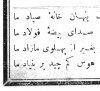 پنهان خانهٔ صیاد ما
صدای بیضهٔ فولاد ما
بغیر از پهلوی ما زاد ما
هوس کم چید بر بنیاد ما